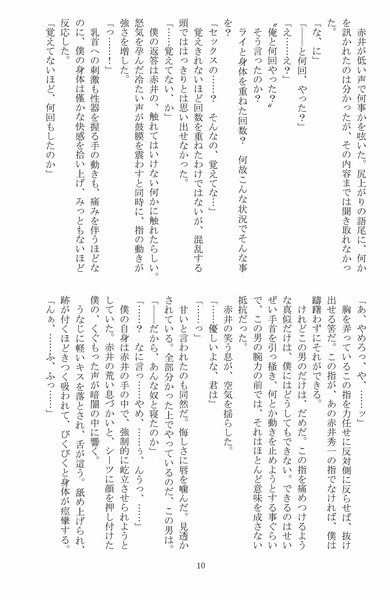 赤井が低い声で何事かを呟いた。尻上がりの語尾に、何か
を訊かれたのは分かったが、その内容までは聞き取れなかっ
た。
「な、に」
「――と何回、やった？」
「え……え？」
〝俺と何回やった？〟
そう言ったのか？
ライと身体を重ねた回数？　何故こんな状況でそんな事
を？
「セックスの……？　そんなの、覚えてな……」
覚えきれないほど回数を重ねたわけではないが、混乱する
頭でははっきりとは思い出せなかった。
「……覚えてない、か」
僕の返答は赤井の、触れてはいけない何かに触れたらしい。
怒気を孕んだ冷たい声が鼓膜を震わすと同時に、指の動きが
強さを増した。
「……ッ！」
乳首への刺激も性器を握る手の動きも、痛みを伴うほどな
のに、僕の身体は僅かな快感を拾い上げ、みっともないほど
反応した。
「覚えてないほど、何回もしたのか」
「あ、やめろっ、や、……ッ」
胸を弄っているこの指を力任せに反対側に反らせば、抜け
出せる筈だ。この指が、あの赤井秀一の指でなければ、僕は
躊躇わずにそれができる。
けれどこの男のだけは、だめだ。この指を痛めつけるよう
な真似だけは、僕にはどうしてもできない。できるのはせい
ぜい手首を引っ掻き、何とか動きを止めようとする事ぐらい
で、この男の腕力の前では、それはほとんど意味を成さない
抵抗だった。
赤井の笑う息が、空気を揺らした。
「……優しいよな、君は」
「……っ」
甘いと言われたのも同然だ。悔しさに唇を噛んだ。見透か
されている。全部分かった上でやっているのだ、この男は。
「――だから、あんな奴と寝たのか」
「……？　なに言っ……やめ、……ぅ、んうっ、……」
僕の自身は赤井の手の中で、強制的に屹立させられようと
していた。赤井の荒い息づかいと、シーツに顔を押し付けた
僕の、くぐもった声が暗闇の中に響く。
うなじに軽いキスを落とされ、舌が這う。舐め上げられ、
跡が付くほどきつく吸われて、びくびくと身体が痙攣する。
「んぁ、……ふ、ふっ……」
10